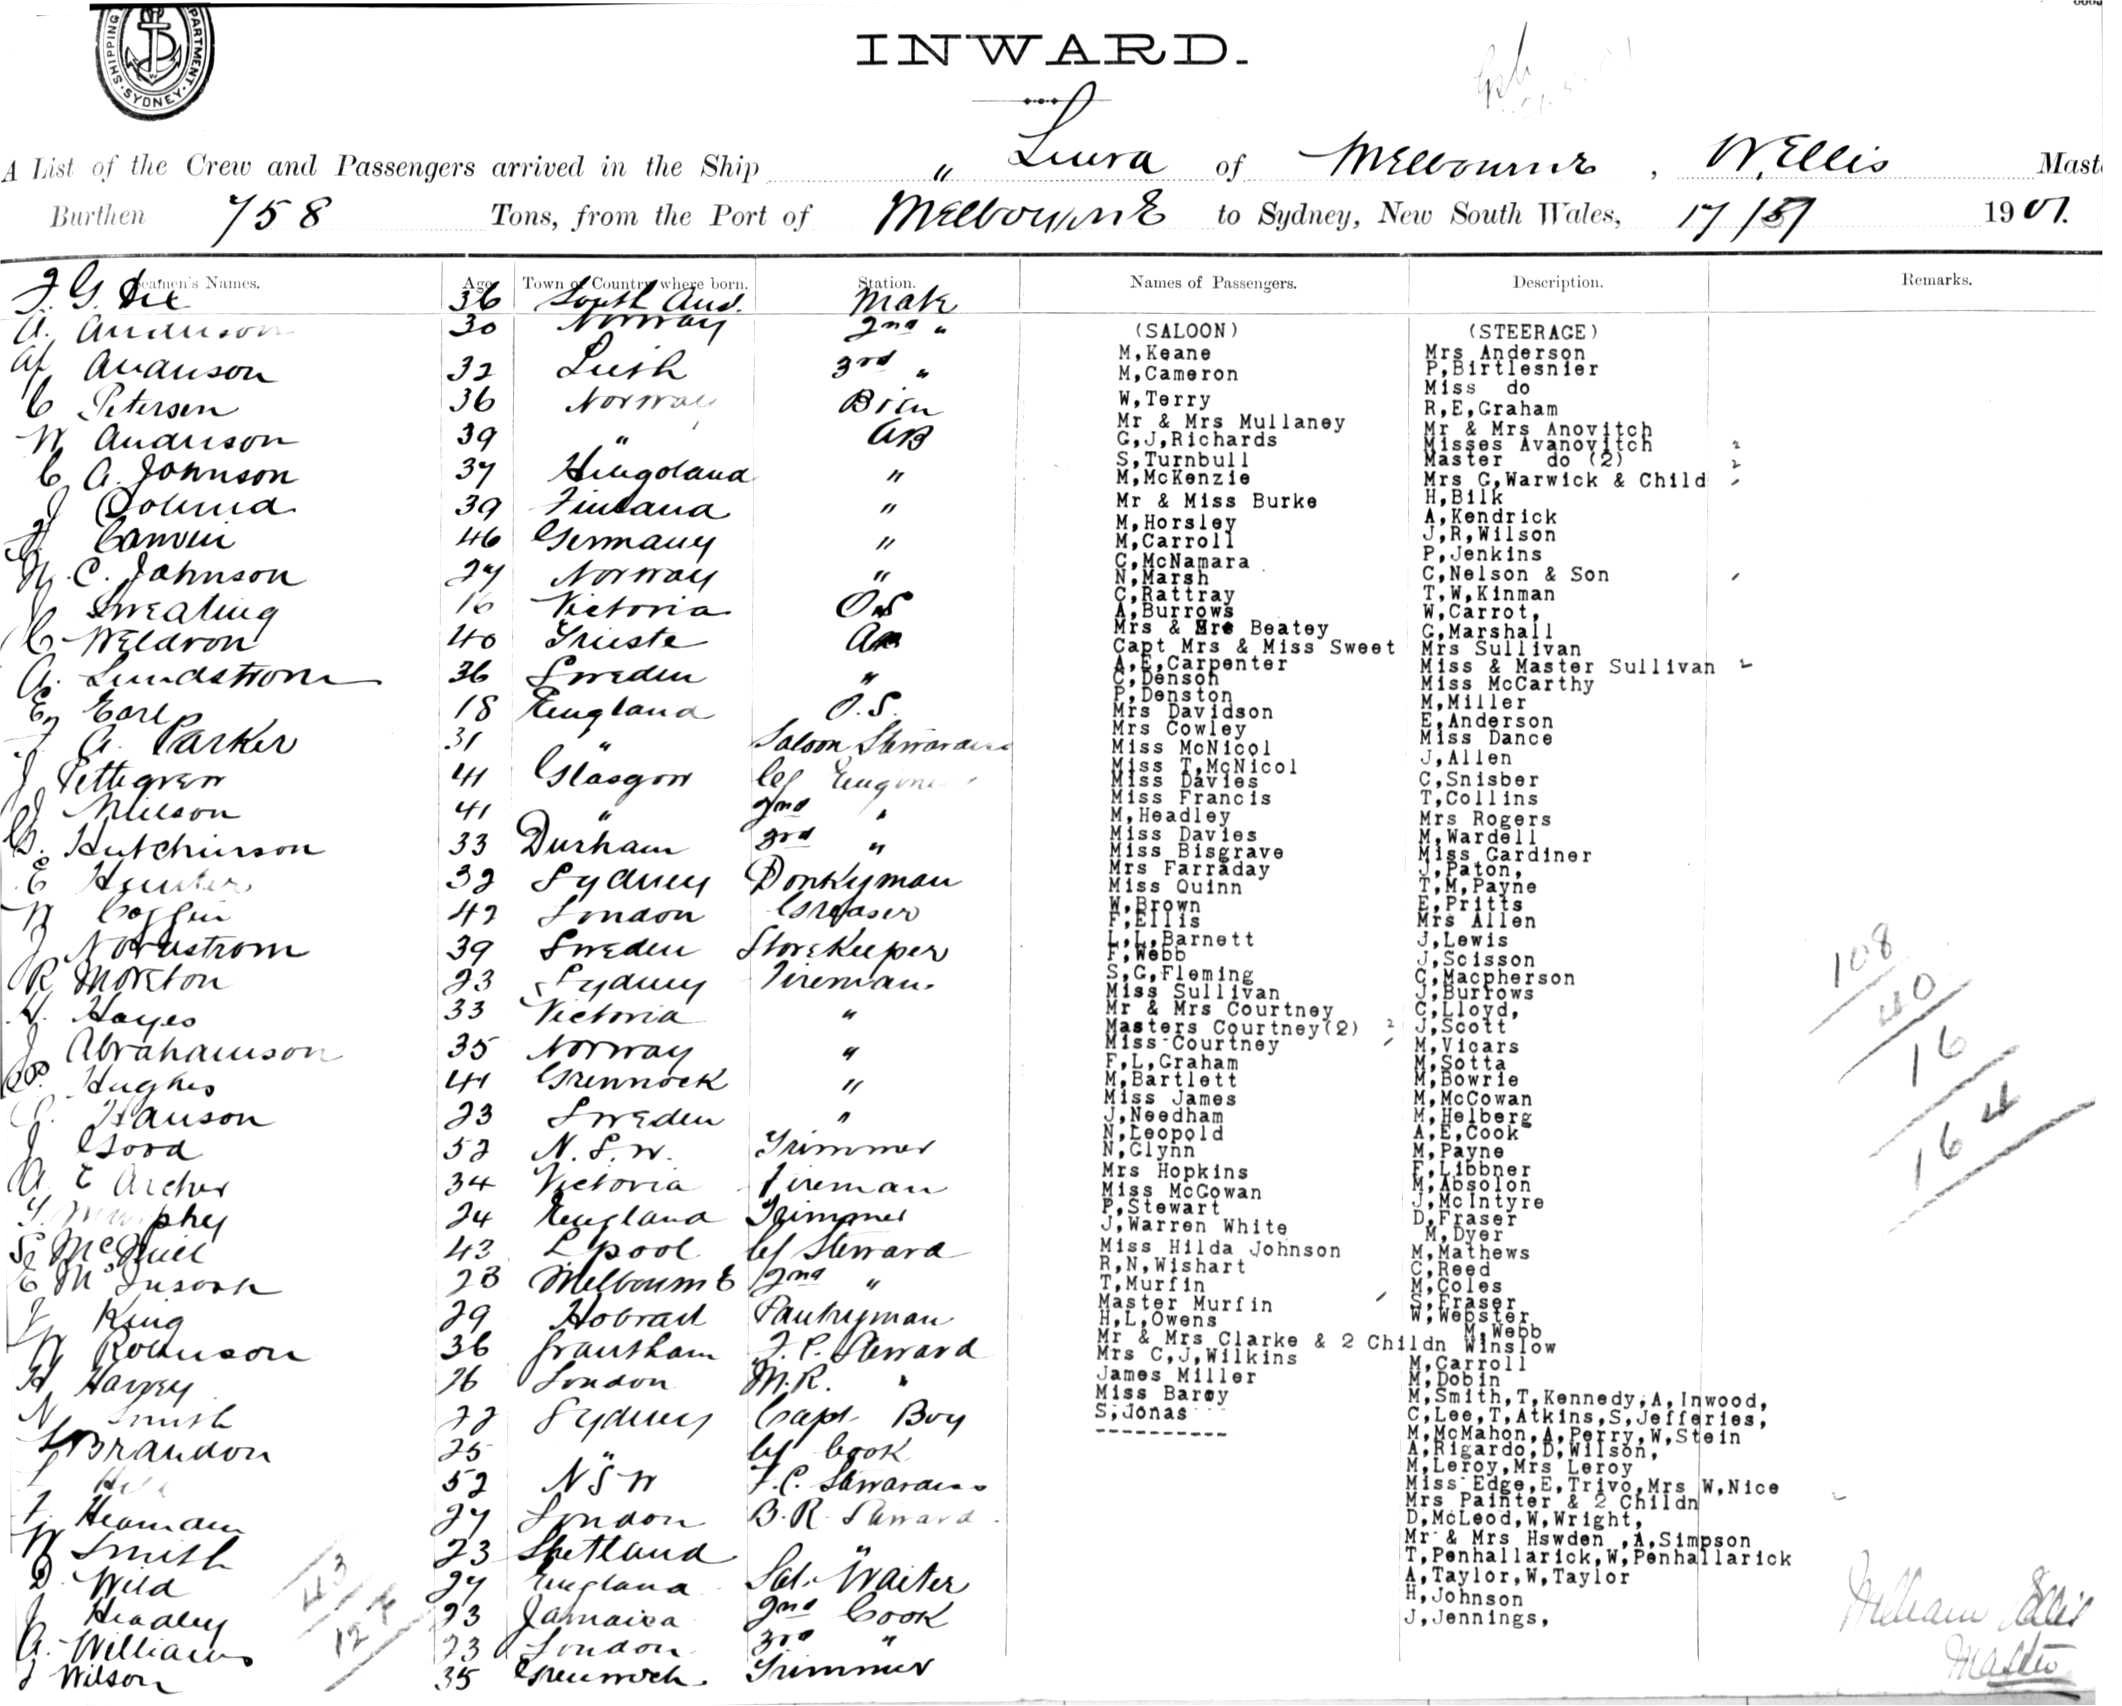 SHIPPING DEPARTMENT SYDNEY
INWARD.
A List of the Crew and Passengers arrived in the Ship „ Leura of Melbourne, W. Ellis Mast
Burthen 758 Tons, from the Port of Melbourne to Sydney, New South Wales, 17/5/ 1901.
Seamen's Names. Age Town or Country where born. Station. Names of Passengers. Description. Remarks.
36 South Aus. Mate
A. Anderson 30 Norway 2nd "
Anderson 32 Leith 3rd "
C Petersen 36 Norway
W Anderson 39 " AB
C A. Johnson 37 "
J 39 Finland "
46 Germany "
C. Johnson 27 Norway "
Sweating 16 Victoria O.S
C Weldron 40 Trieste
A. Lundstrom 36 Sweden "
E Earl 18 England O.S.
A. Parker 31 " Saloon Stewardess
J Pettegrew 41 Glasgow
J Neilson 41 " 2nd "
Hutchinson 33 Durham 3rd "
E Hunter 32 Sydney Donkyman
W Coffin 42 London Greaser
J Nordstrom 39 Sweden Storekeeper
R Moreton 23 Sydney Fireman.
H. Hayes 33 Victoria "
J Abrahamson 35 Norway "
Hughes 41 Greenock "
Hanson 23 Sweden "
J Good 52 N.S.W. Trimmer
A E Archer 34 Victoria Fireman
Murphy 24 England Trimmer
43 L'pool Cf Steward
E McIntosh 23 Melbourne 2nd "
King 29 Hobart Pantryman
W Robinson 36 Grantham F.C. Steward
H Harvey 26 London M.R. "
N Smith 22 Sydney Capt. Boy
Brandon 25 " Cf Cook
Hill 52 NSW F.C. Stewardess
27 London B.R. Steward.
W Smith 23 Shetland "
D. Wild 27 England Sal. Waiter
J Headley 23 Jamaica 2nd Cook
A. Williams 23 London 3rd "
J Wilson 35 Greenock. Trimmer
43
(SALOON)
M,Keane
M,Cameron
W,Terry
Mr & Mrs Mullaney
G,J,Richards
S,Turnbull
M,McKenzie
Mr & Miss Burke
M,Horsley
M,Carroll
C,McNamara
N,Marsh
C,Rattray
A,Burrows
Mrs & Mrs Beatey
Capt Mrs & Miss Sweet
A,E,Carpenter
C,Denson
P,Denston
Mrs Davidson
Mrs Cowley
Miss McNicol
Miss T,McNicol
Miss Davies
Miss Francis
M,Headley
Miss Davies
Miss Bisgrave
Mrs Farraday
Miss Quinn
W,Brown
F,Ellis
L,L,Barnett
F,Webb
S,G,Fleming
Miss Sullivan
Mr & Mrs Courtney
Masters Courtney(2) 2
Miss Courtney
F,L,Graham
M,Bartlett
Miss James
J,Needham
N,Leopold
N,Glynn
Mrs Hopkins
Miss McGowan
P,Stewart
J,Warren White
Miss Hilda Johnson
R,N,Wishart
T,Murfin
Master Murfin
H,L,Owens
Mr & Mrs Clarke & 2 Childn
Mrs C,J,Wilkins
James Miller
Miss Barey
S,Jonas
----------
(STEERAGE)
Mrs Anderson
P,Birtlesnier
Miss do
R,E,Graham
Mr & Mrs Anovitch
Misses Avanovitch 2
Master do (2) 2
Mrs G,Warwick & Child
H,Bilk
A,Kendrick
J,R,Wilson
P,Jenkins
C,Nelson & Son
T,W,Kinman
W,Carrot,
G,Marshall
Mrs Sullivan
Miss & Master Sullivan 2
Miss McCarthy
M,Miller
E,Anderson
Miss Dance
J,Allen
C,Snisber
T,Collins
Mrs Rogers
M,Wardell
Miss Gardiner
J,Paton,
T,M,Payne
E,Pritts
Mrs Allen
J,Lewis
J,Scisson
C,Macpherson
J,Burrows
C,Lloyd,
J,Scott
M,Vicars
M,Sotta
M,Bowrie
M,McCowan
M,Helberg
A,E,Cook
M,Payne
F,Libbner
M,Absolon
J,McIntyre
D,Fraser
M,Dyer
M,Mathews
C,Reed
M,Coles
S,Fraser
W,Webster
M,Webb
Winslow
M,Carroll
M,Dobin
M,Smith,T,Kennedy,A,Inwood,
C,Lee,T,Atkins,S,Jefferies,
M,McMahon,A,Perry,W,Stein
A,Rigardo,D,Wilson,
M,Leroy,Mrs Leroy
Miss Edge,E,Trivo,Mrs W,Nice
Mrs Painter & 2 Childn
D,McLeod,W,Wright,
Mr & Mrs Hswden ,A,Simpson
T,Penhallarick,W,Penhallarick
A,Taylor,W,Taylor
H,Johnson
J,Jennings,
108
40
16
164
William Ellis
Master